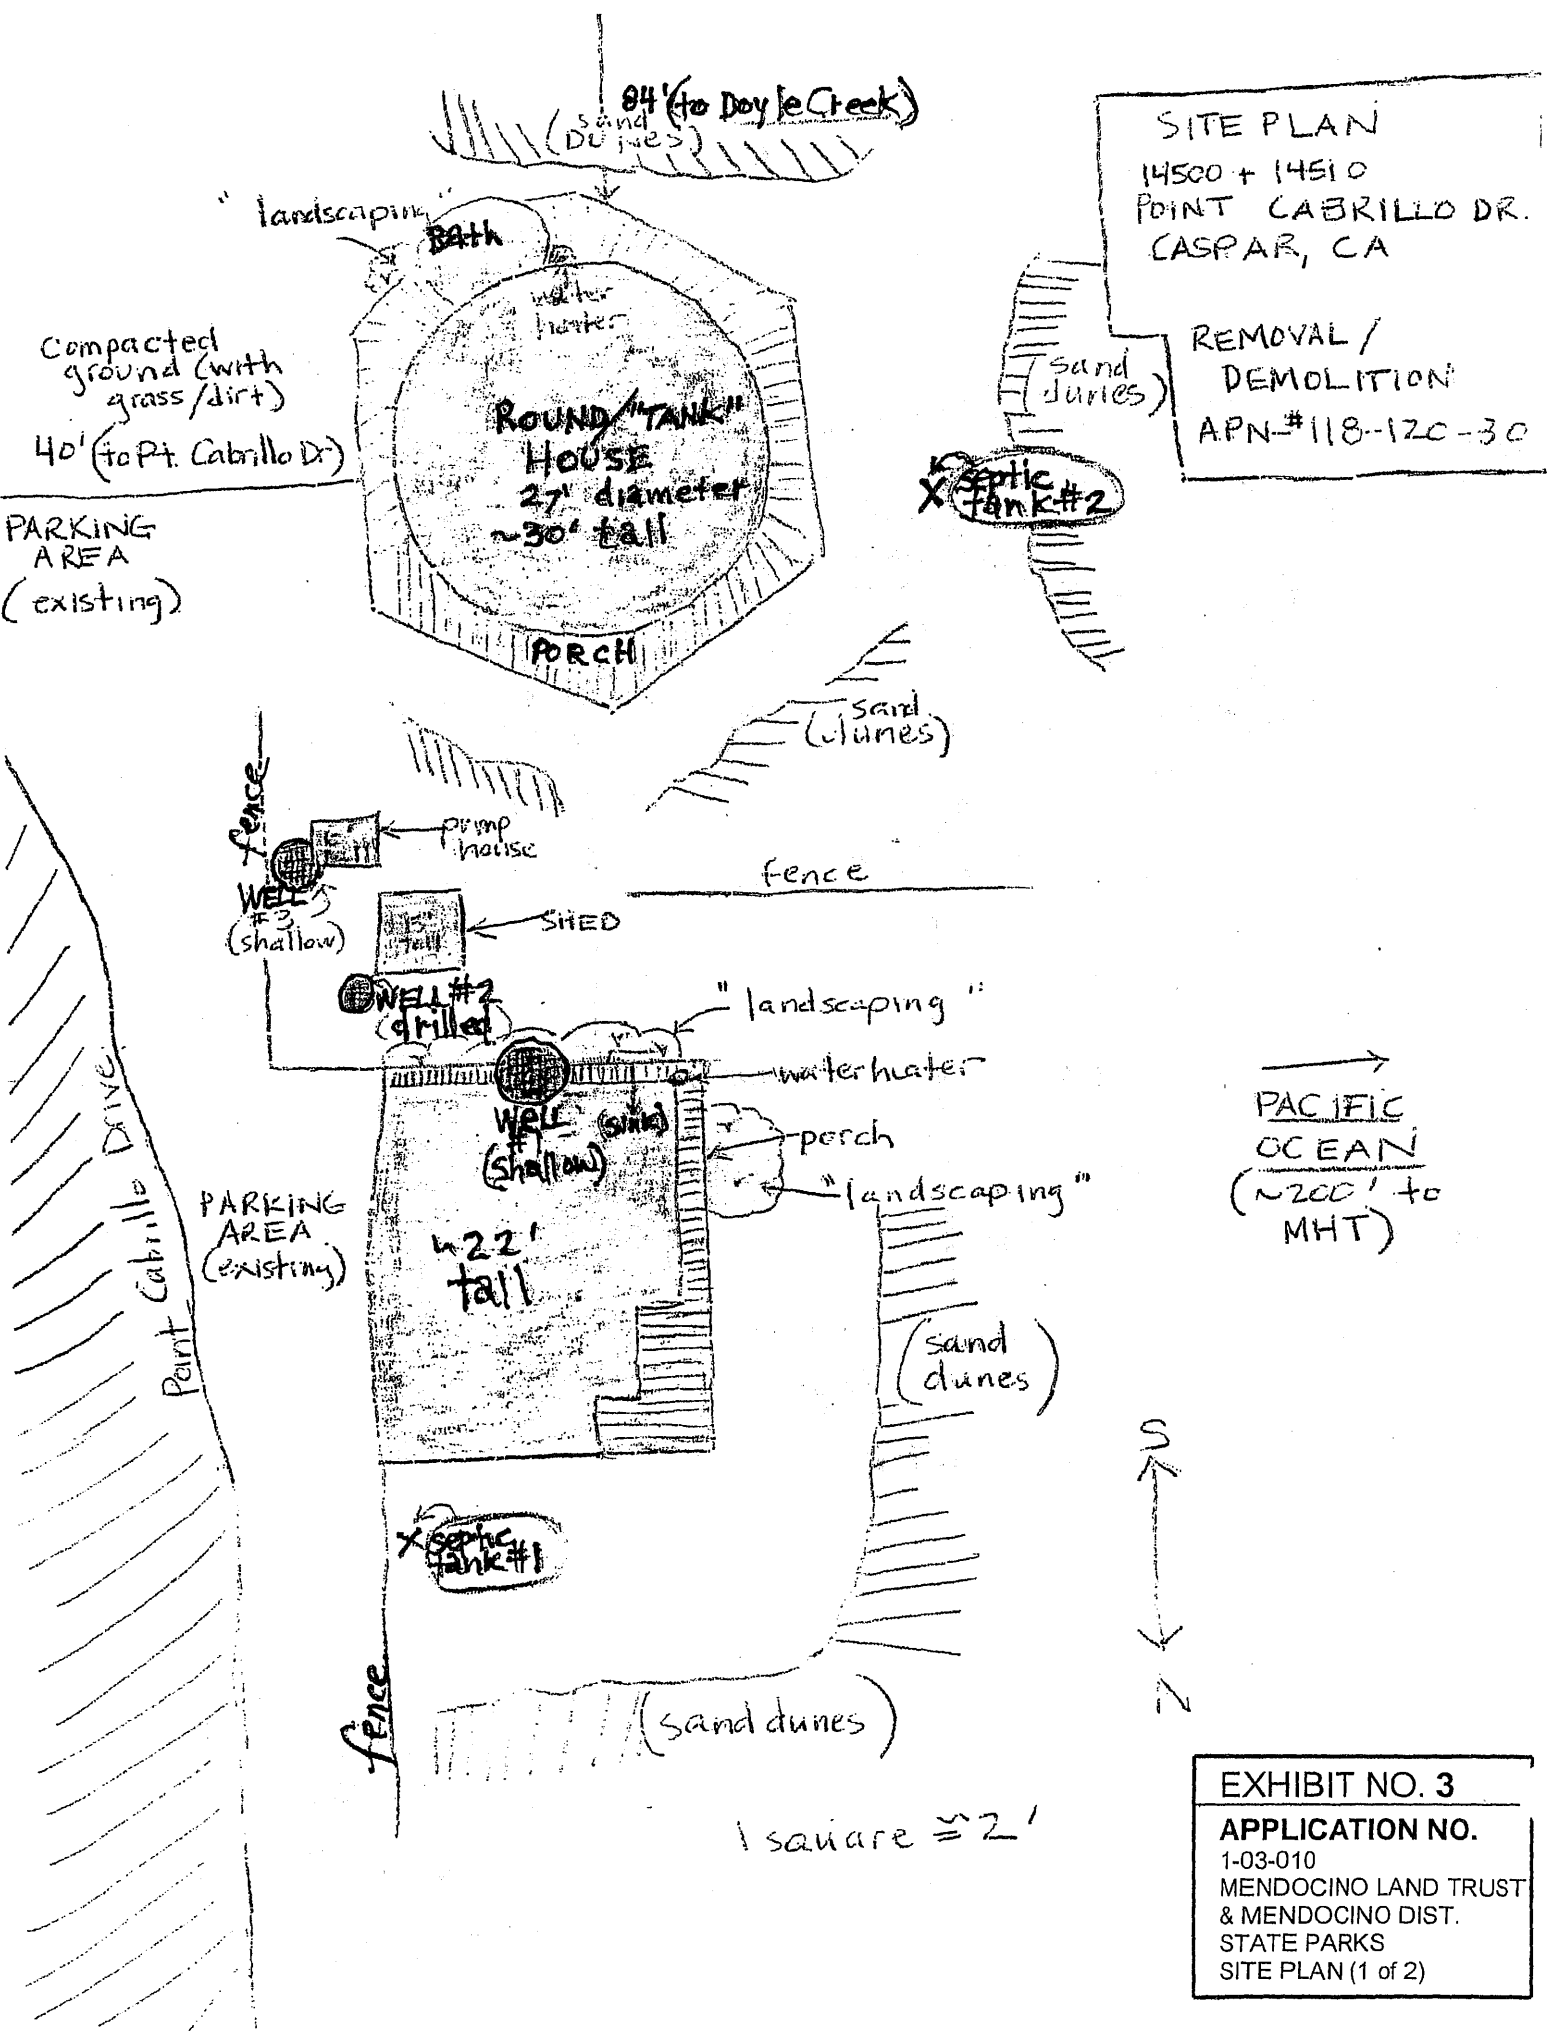 84' (to Doyle Creek)
(sand
Dunes)
SITE PLAN
14500 + 14510
POINT CABRILLO DR.
CASPAR, CA
REMOVAL /
DEMOLITION
APN-#118-120-30
"landscaping"
Bath
water
heater
Compacted
ground (with
grass/dirt)
40' (to Pt. Cabrillo Dr)
PARKING
AREA
(existing)
ROUND/"TANK"
HOUSE
27' diameter
~30' tall
PORCH
(sand
dunes)
X septic
tank #2
(sand
dunes)
fence
pump
house
WELL
#3
(shallow)
fence
SHED
tall
WELL #2
(drilled)
"landscaping"
waterheater
WELL
#1
(shallow)
(sink)
porch
"landscaping"
PACIFIC
OCEAN
(~200' to
MHT)
Point Cabrillo Drive
PARKING
AREA
(existing)
~22'
tall
(sand
dunes)
S
N
X septic
tank #1
fence
(sand dunes)
1 square ≅ 2'
EXHIBIT NO. 3
APPLICATION NO.
1-03-010
MENDOCINO LAND TRUST
& MENDOCINO DIST.
STATE PARKS
SITE PLAN (1 of 2)